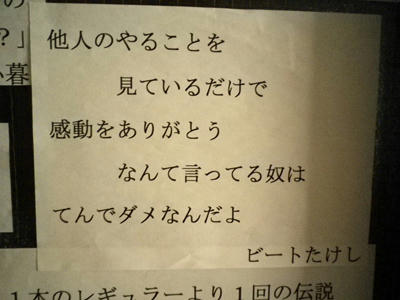 の
？」
い暮
他人のやることを
見ているだけで
感動をありがとう
なんて言ってる奴は
てんでダメなんだよ
ビートたけし
１本のレギュラーより１回の伝説